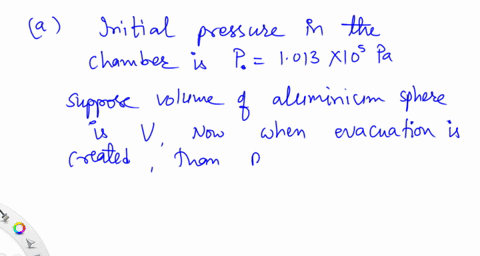 (a) Initial pressure in the
chamber is P₀ = 1.013 X10⁵ Pa
suppose volume of aluminium sphere
is V, Now when evacuation is
created, than p